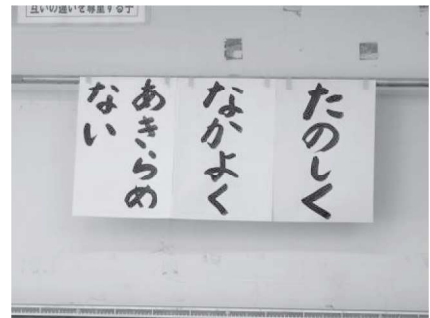 互いの違いを尊重する子
たのしく
なかよく
あきらめ
ない